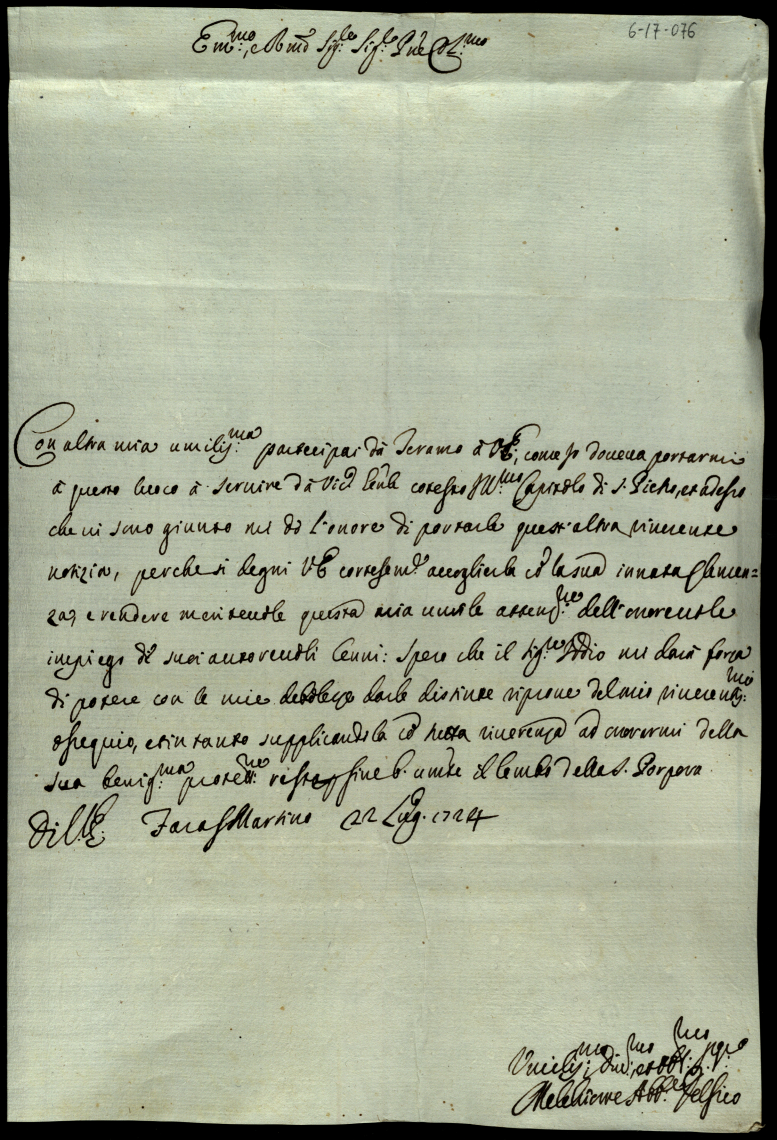 6-17-076
Em:mo, e Rmo Sig:re Sig:re Pne Col:mo
Con altra mia umilis:ma partecipai da Teramo à VE, come Io doveva portarmi
à questo luoco à servire da Vic:o cotesto Ill:mo Capitolo di S. Pietro, et adesso
che vi sono giunto mi dò l'onore di portarle quest'altra riverente
notizia, perche si degni VE cortesem:te accoglierla cõ la sua innata Clemen=
za, e rendere meritevole questa mia umile attenz:ne dell'onorevole
impiego de suoi autorevoli Cenni: spero che il Sig:re Iddio mi darà forza
di potere con le mie debolezze darle distinte riprove del mio riverentis:mo
ossequio, et in tanto supplicandola cõ tutta riverenza ad onorarmi della
sua benig:ma protez:ne resto, sin che b. umte il lembo della S. Porpora
Di VE: Fara S Martino 22 Lug. 1724
Umilis:mo Div:mo, et obbl:mo
Melchiorre Abb:e Delfico